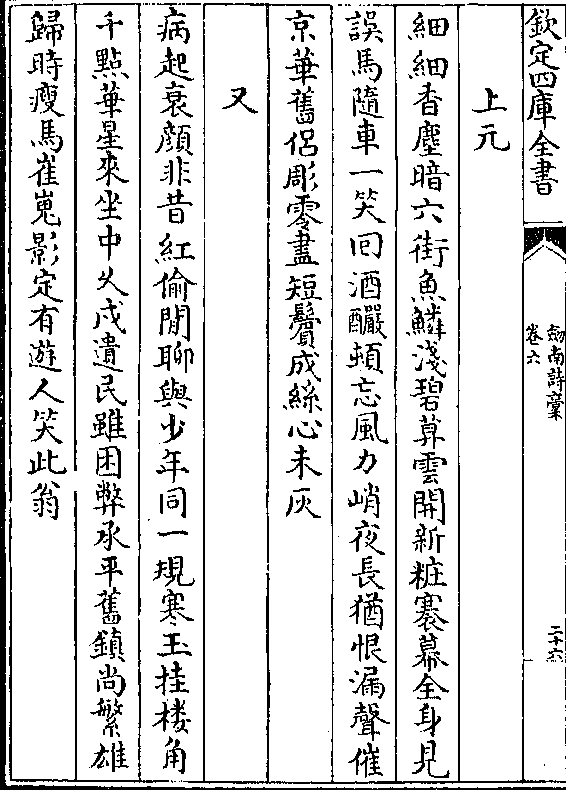 欽定四庫全書
劔南詩稾
卷六
二十六
上元
細細香塵暗六街魚鱗淺碧暮雲開新粧褰幕全身見
誤馬隨車一笑回酒釅頓忘風力峭夜長猶恨漏聲催
京華舊侶彫零盡短鬢成絲心未灰
又
病起衰顔非昔紅偷閒聊與少年同一規寒玉挂樓角
千點華星來坐中乆戍遺民雖困弊承平舊鎮尚繁雄
歸時瘦馬崔嵬影定有遊人笑此翁